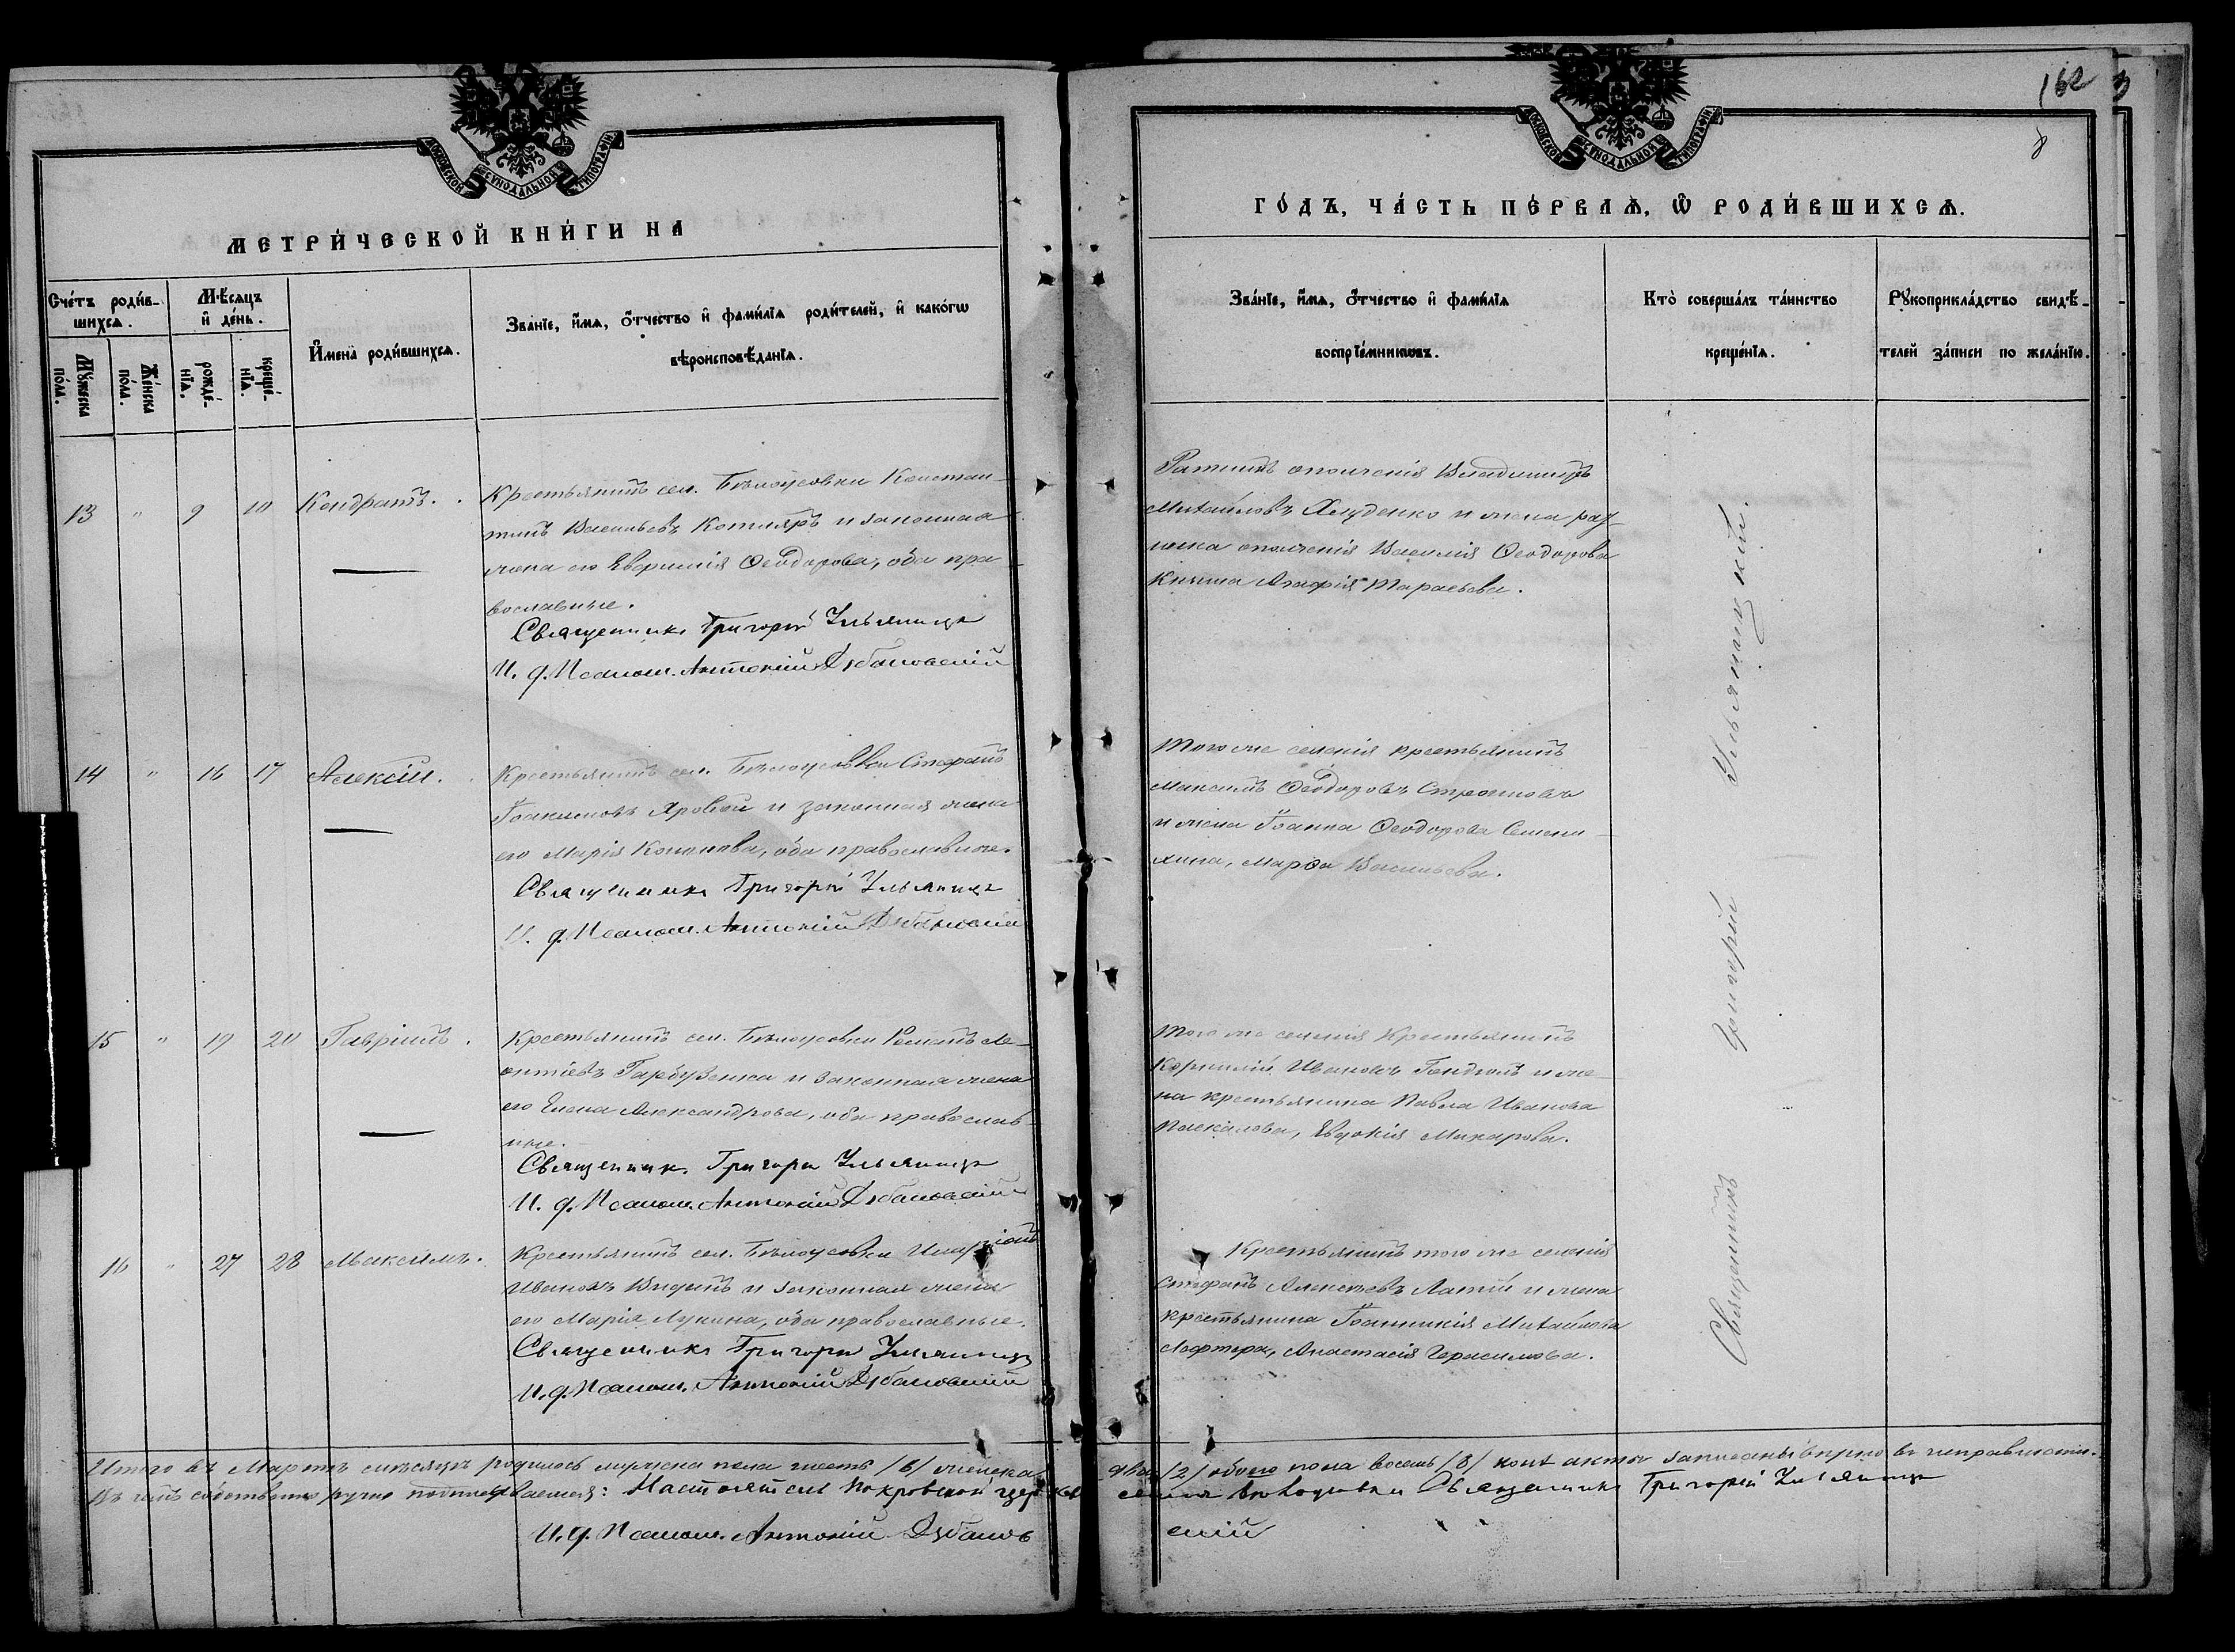 162
8
МОСКОВСКОЙ СѴНОДАЛЬНОЙ ТИПОГРАФІИ
МОСКОВСКОЙ СѴНОДАЛЬНОЙ ТИПОГРАФІИ
МЕТРИ́ЧЕСКОЙ КНИ́ГИ НА
ГО́ДЪ, ЧА́СТЬ ПЕ́РВАѦ, Ѡ РОДИ́ВШИХСѦ.
Сче́тъ роди́в-
шихсѧ.
Мꙋ́жеска по́ла.
Же́нска по́ла.
Мѣ́сѧцъ и҆ де́нь.
рожде́-нїѧ.
креще́-нїѧ.
И҆мена̀ роди́вшихсѧ.
Зва́нїе, и҆́мѧ, ѻ҆́тчество и҆ фами́лїѧ роди́телей, и҆ како́гѡ
вѣроисповѣ́данїѧ.
Зва́нїе, и҆́мѧ, ѻ҆́тчество и҆ фами́лїѧ
воспрїе́мникѡвъ.
Кто̀ соверша́лъ та́инство
креще́нїѧ.
Рꙋкоприкла́дство свидѣ́-
телей за́писи по жела́нїю.
13 " 9 10 Кондратъ.
Крестьянинъ сел. Бѣлоусовки Констан-
тинъ Васильевъ Котляръ и законная
жена его Евфимія Ѳеодорова, оба пра-
вославные.
Священникъ Григорій Ульяницк
И. д. Псалом. Антоній Дубановскій
Ратникъ ополченія Владимиръ
Михайловъ и жена рат-
ника ополченія Василія Ѳеодорова
Агафія Тарасьева.
14 " 16 17 Алексій.
Крестьянинъ сел. Бѣлоусовки Стефанъ
Іоакимовъ Яровой и законная жена
его Марія Кононова, оба православные.
Священникъ Григорій Ульяницк
И. д. Псалом. Антоній Дубановскій
Того же селенія крестьянинъ
Максимъ Ѳеодоровъ
и жена Іоанна Ѳеодорова
Марѳа Васильева.
15 " 19 20 Гавріилъ.
Крестьянинъ сел. Бѣлоусовки Романъ Ле-
онтіевъ Гарбузенко и законная жена
его Елена Александрова, оба православ-
ные.
Священник Григорій Ульяницк
И. д. Псалом. Антоній Дубановскій
Того же селенія Крестьянинъ
Корнилій Ивановъ и же-
на крестьянина Павла Иванова
Паскалова, Евдокія Макарова.
16 " 27 28 Максимъ.
Крестьянинъ сел. Бѣлоусовки Иларіонъ
Ивановъ и законная жена
его Марія Лукина, оба православные.
Священникъ Григорій Ульяницк
И. д. Псалом. Антоній Дубановскій
Крестьянинъ того же селенія
Стефанъ Алексѣевъ Латій и жена
крестьянина Іоанникія Михайлова
Лефтера, Анастасія Герасимова.
Священникъ Григорій Ульяницкій.
Итого въ Мартѣ мѣсяцѣ родилось мужска пола шесть /6/ женска два /2/ обоего пола восемь /8/ акты записаны вѣрно въ
въ чемъ собственно ручно подписываемся: Настоятель Покровской церкви селенія Бѣлоусовки Священникъ Григорій Ульяницк
И. д. Псалом. Антоній Дубановскій